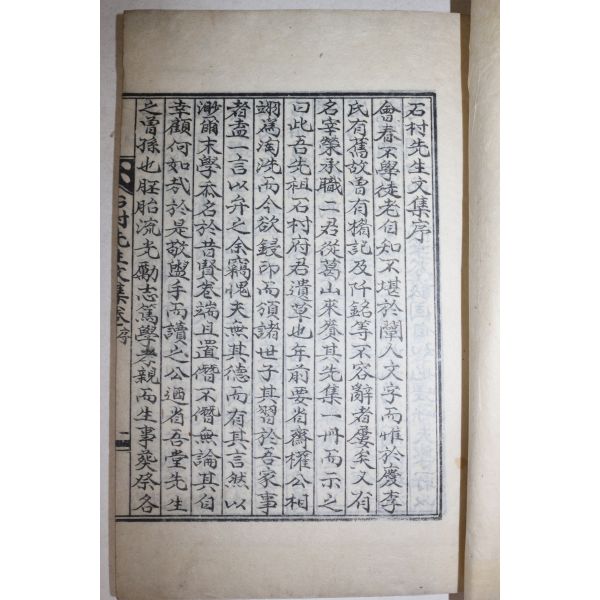 石村先生文集序
會春不學徒老自知不堪於闡人文字而惟於慶李
氏有舊故曾有楣記及阡銘等不容辭者屢矣又有
名宰榮承職二君從葛山來賚其先集一冊而示之
曰此吾先祖石村府君遺草也年前要省齋權公相
翊爲淘洗而今欲鋟印而頒諸世子其習於吾家事
者盍一言以弁之余竊愧夫無其德而有其言然以
渺爾末學忝名於昔賢卷端且置僭不僭無論其自
幸顧何如哉於是敬盥手而讀之公迺省吾堂先生
之曾孫也胚胎流光勵志篤學孝親而生事葬祭各
石村先生文集 序
一